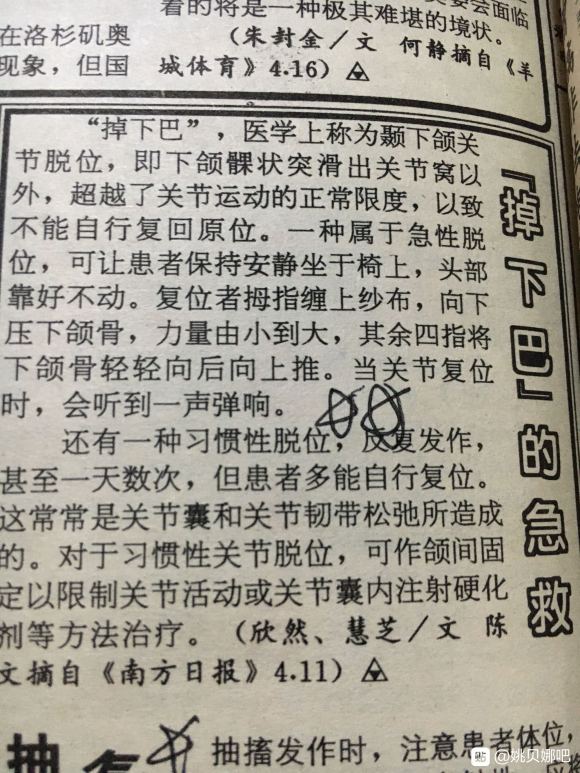 看的将是一种极其难堪的境状。
在洛杉矶奥
(朱封金/文 何静摘自《羊
现象，但国
城体育》4.16)
“掉下巴”的急救
“掉下巴”，医学上称为颞下颌关
节脱位，即下颌髁状突滑出关节窝以
外，超越了关节运动的正常限度，以致
不能自行复回原位。一种属于急性脱
位，可让患者保持安静坐于椅上，头部
靠好不动。复位者拇指缠上纱布，向下
压下颌骨，力量由小到大，其余四指将
下颌骨轻轻向后向上推。当关节复位
时，会听到一声弹响。
还有一种习惯性脱位，反复发作，
甚至一天数次，但患者多能自行复位。
这常常是关节囊和关节韧带松弛所造成
的。对于习惯性关节脱位，可作颌间固
定以限制关节活动或关节囊内注射硬化
剂等方法治疗。(欣然、慧芝/文 陈
文摘自《南方日报》4.11)
抽
抽搐发作时，注意患者体位，
贴 @姚贝娜吧